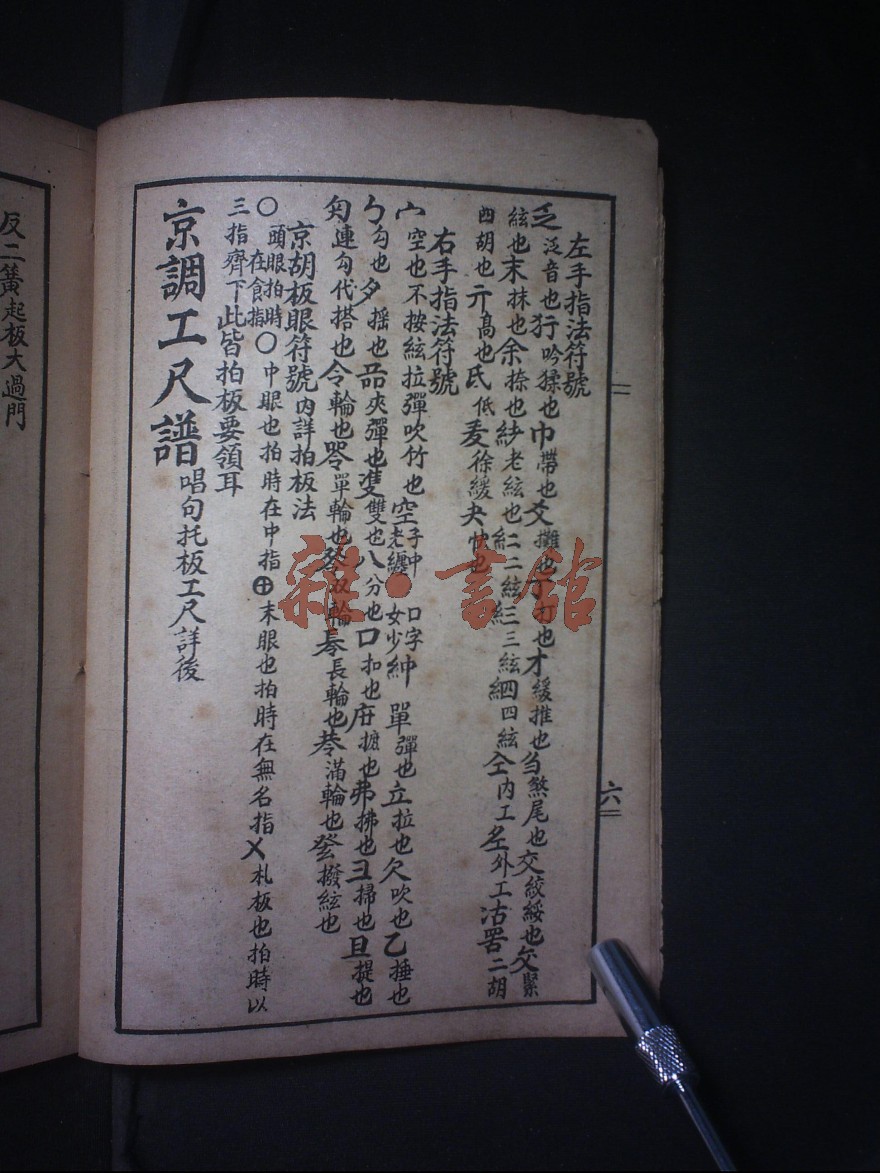 左手指法符號
乏泛音也 行吟猱也 巾帶也 爻攤也 丁打也 才緩推也 刍煞尾也 交絞綏也 攵緊
絃也 末抹也 余捺也 紗老絃也 二絃 三絃 四絃 仝內工 㐰外工 沽罟二胡
四胡也 亓高也 氏低 夌徐緩 夬快也
右手指法符號
宀空也不按絃拉彈吹竹也 空子中老纏 口字女少 紳 單彈也 立拉也 欠吹也 乙捶也
勹勾也 夕搖也 㗊夾彈也 隻雙也 八分也 口扣也 㡯摭也 弗拂也 彐掃也 旦提也
匇連勾代搭也 令輪也 單輪也 双輪 長輪也 滿輪也 癹撥絃也
京胡板眼符號 內詳拍板法
〇頭眼拍時在食指 〇中眼也拍時在中指 ⊕末眼也拍時在無名指 乂札板也拍時以
三指齊下此皆拍板要領耳
京調工尺譜 唱句托板工尺詳後
六
反二簧起板大過門
雜·書館